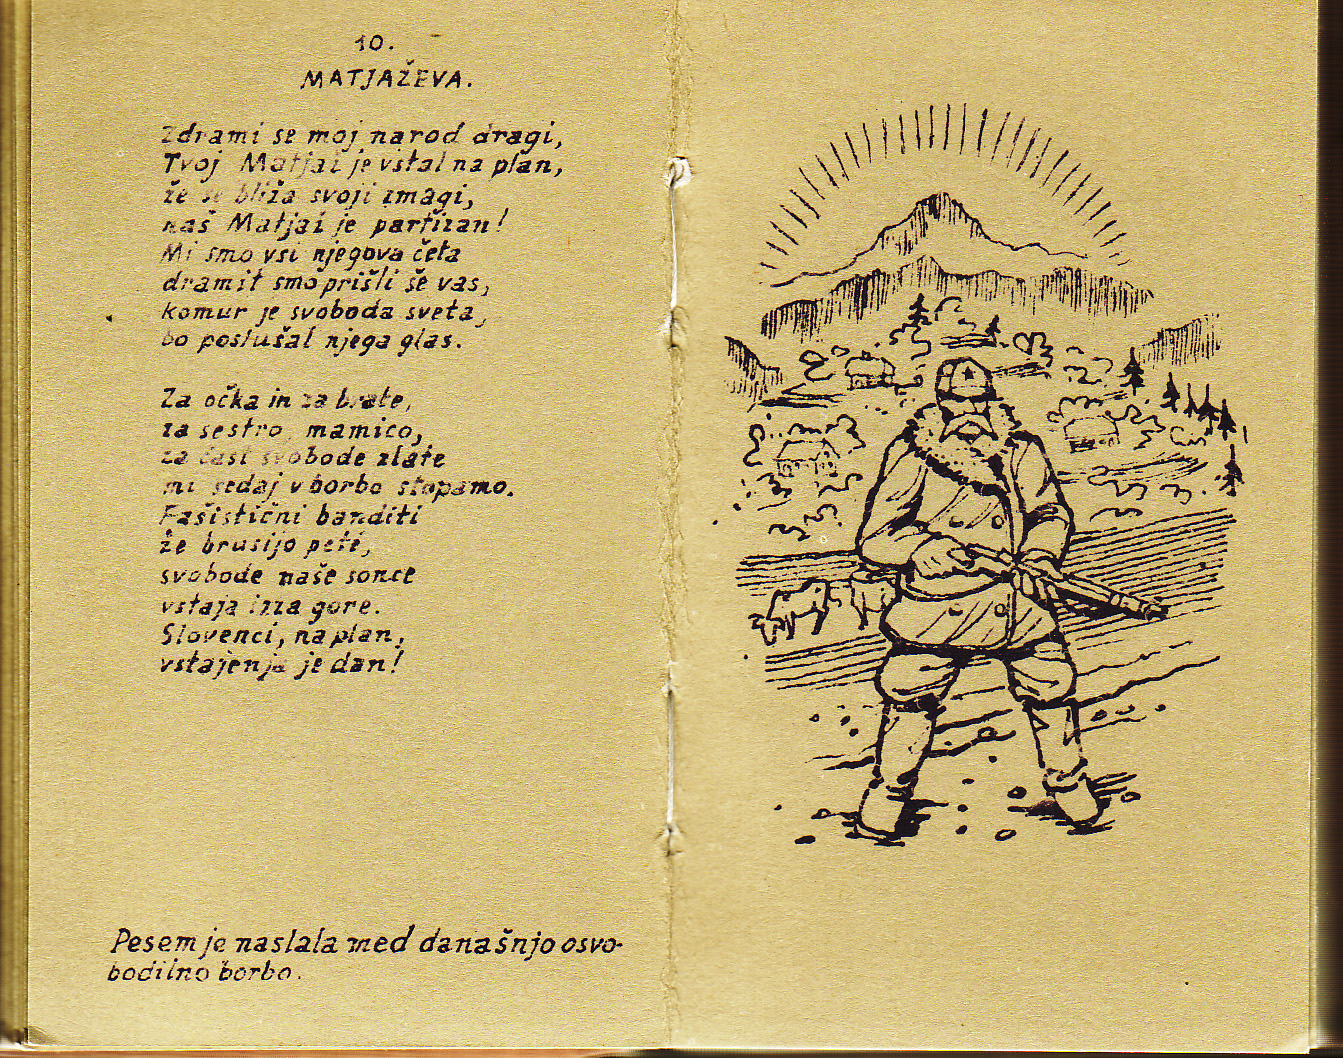 10.
MATJAŽEVA.
Zdrami se moj narod dragi,
Tvoj Matjaž je vstal na plan,
že se bliža svoji zmagi,
naš Matjaž je partizan!
Mi smo vsi njegova četa
dramit smo prišli še vas,
komur je svoboda sveta,
bo poslušal njega glas.
Za očka in za brate,
za sestro, mamico,
za čast svobode zlate
mi sedaj v borbo stopamo.
Fašistični banditi
že brusijo peté,
svobode naše sonce
vstaja izza gore.
Slovenci, na plan,
vstajenja je dan!
Pesem je nastala med današnjo osvo-
bodilno borbo.